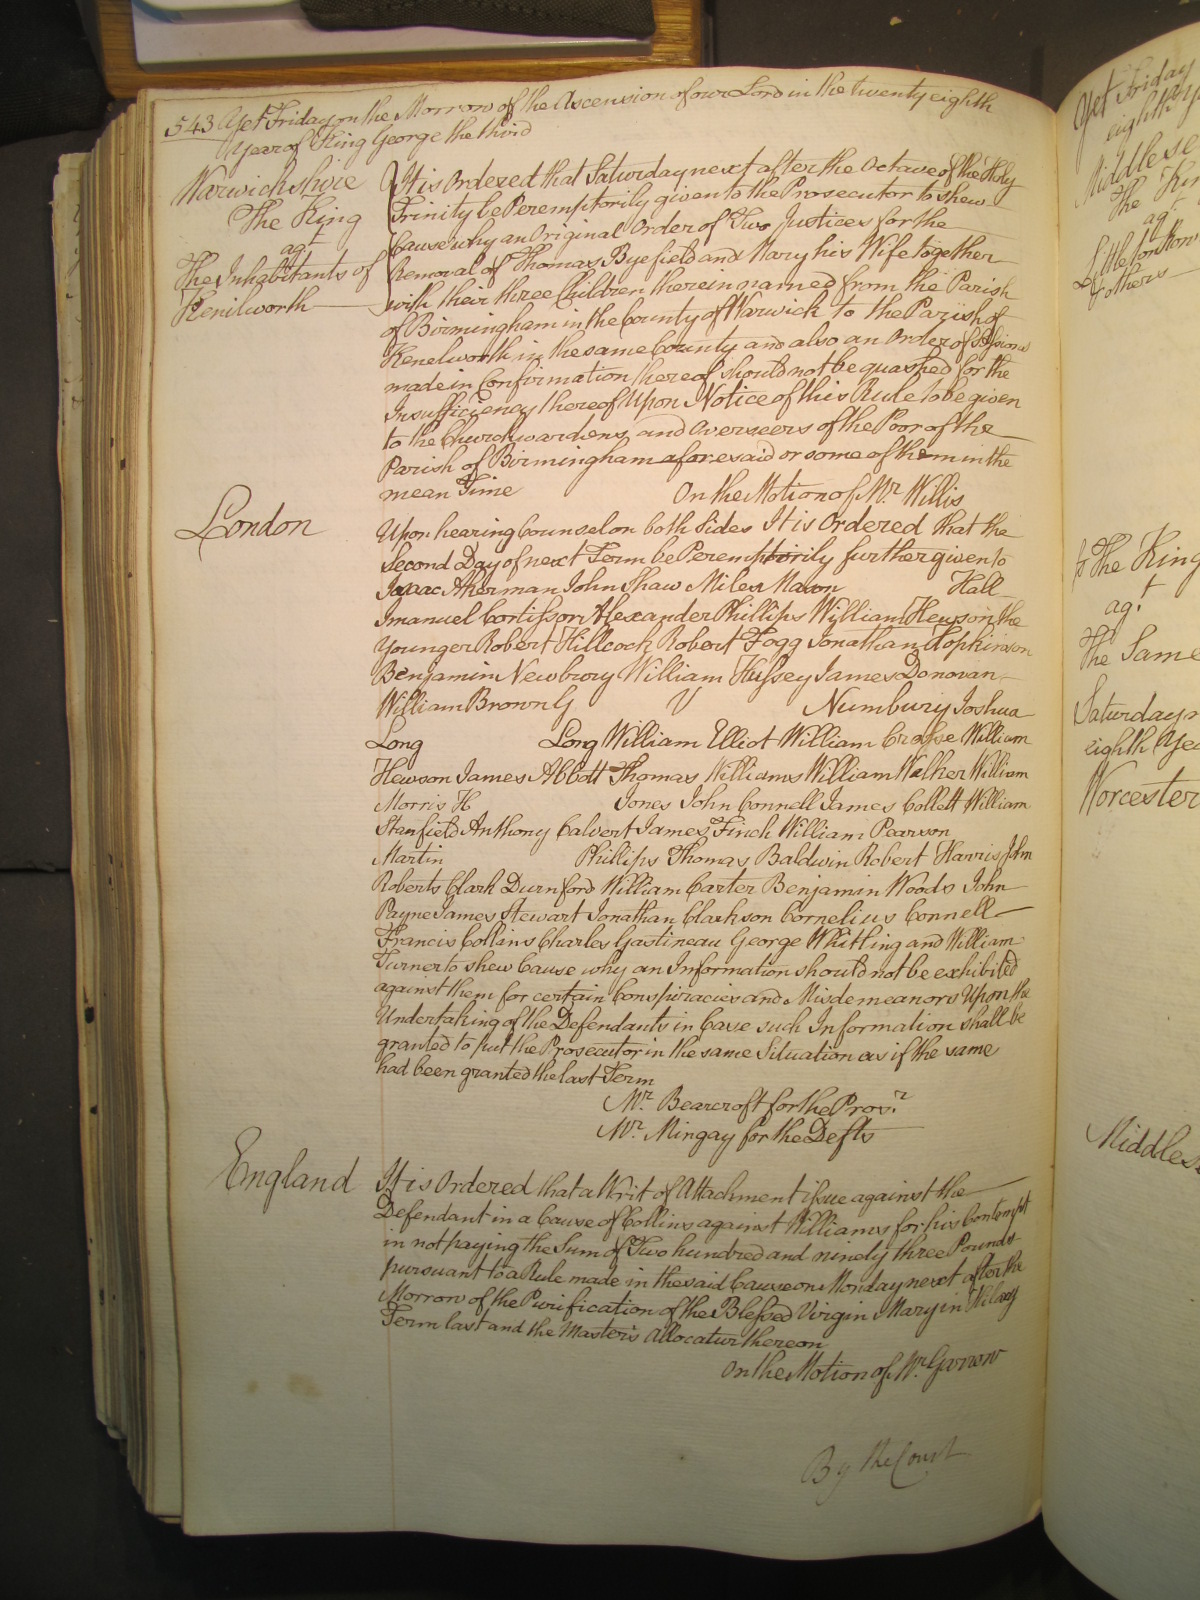 543 Yet Friday on the Morrow of the Ascension of our Lord in the twenty eighth
Year of King George the third
Warwickshire
The King
agt
The Inhabitants of
Kenilworth
It is Ordered that Saturday next after the Octave of the Holy
Trinity be Peremptorily given to the Prosecutor to shew
Cause why an Original Order of Two Justices for the
Removal of Thomas Byefield and Mary his Wife together
with their three Children therein named from the Parish
of Birmingham in the County of Warwick to the Parish of
Kenelworth in the same County and also an Order of Sessions
made in Confirmation thereof should not be quashed for the
Insufficiency thereof Upon Notice of this Rule to be given
to the Churchwardens and Overseers of the Poor of the
Parish of Birmingham aforesaid or some of them in the
mean Time On the Motion of Mr. Willis
London
Upon hearing Counsel on both Sides It is Ordered that the
Second Day of next Term be Peremptorily further given to
Isaac Akerman John Shaw Miles Mason Hall
Imanuel Cortisson Alexander Phillips William Hewson the
Younger Robert Hillcock Robert Fogg Jonathan Hopkinson
Benjamin Newbury William Hussey James Donovan
William Brown G V Numbury Joshua
Long Long William Elliot William Crosse William
Hewson James Abbott Thomas Williams William Walker William
Morris H Jones John Connell James Collett William
Stanfield Anthony Calvert James Finch William Pearson
Martin Phillips Thomas Baldwin Robert Harris John
Roberts Clark Durnford William Carter Benjamin Woods John
Payne James Stewart Jonathan Clarkson Cornelius Connell
Francis Collins Charles Gastineau George Whitling and William
Turner to shew Cause why an Information should not be exhibited
against them for certain Conspiracies and Misdemeanors Upon the
Undertaking of the Defendants in Case such Information shall be
granted to put the Prosecutor in the same Situation as if the same
had been granted the last Term
Mr. Bearcroft for the Prosr.
Mr. Mingay for the Defts
England
It is Ordered that a Writ of Attachment issue against the
Defendant in a Cause of Collins against Williams for his Contempt
in not paying the Sum of Two hundred and ninety three Pounds
pursuant to a Rule made in the said Cause on Monday next after the
Morrow of the Purification of the Blessed Virgin Mary in Hilary
Term last and the Master's Allocatur thereon
On the Motion of Mr. Garrow
By the Court
Yet Friday
eighth
Middlese
The Kin
agt.
Littleton
&others
The King
agt
The Same
Saturday
eighth Yea
Worcester
Middles